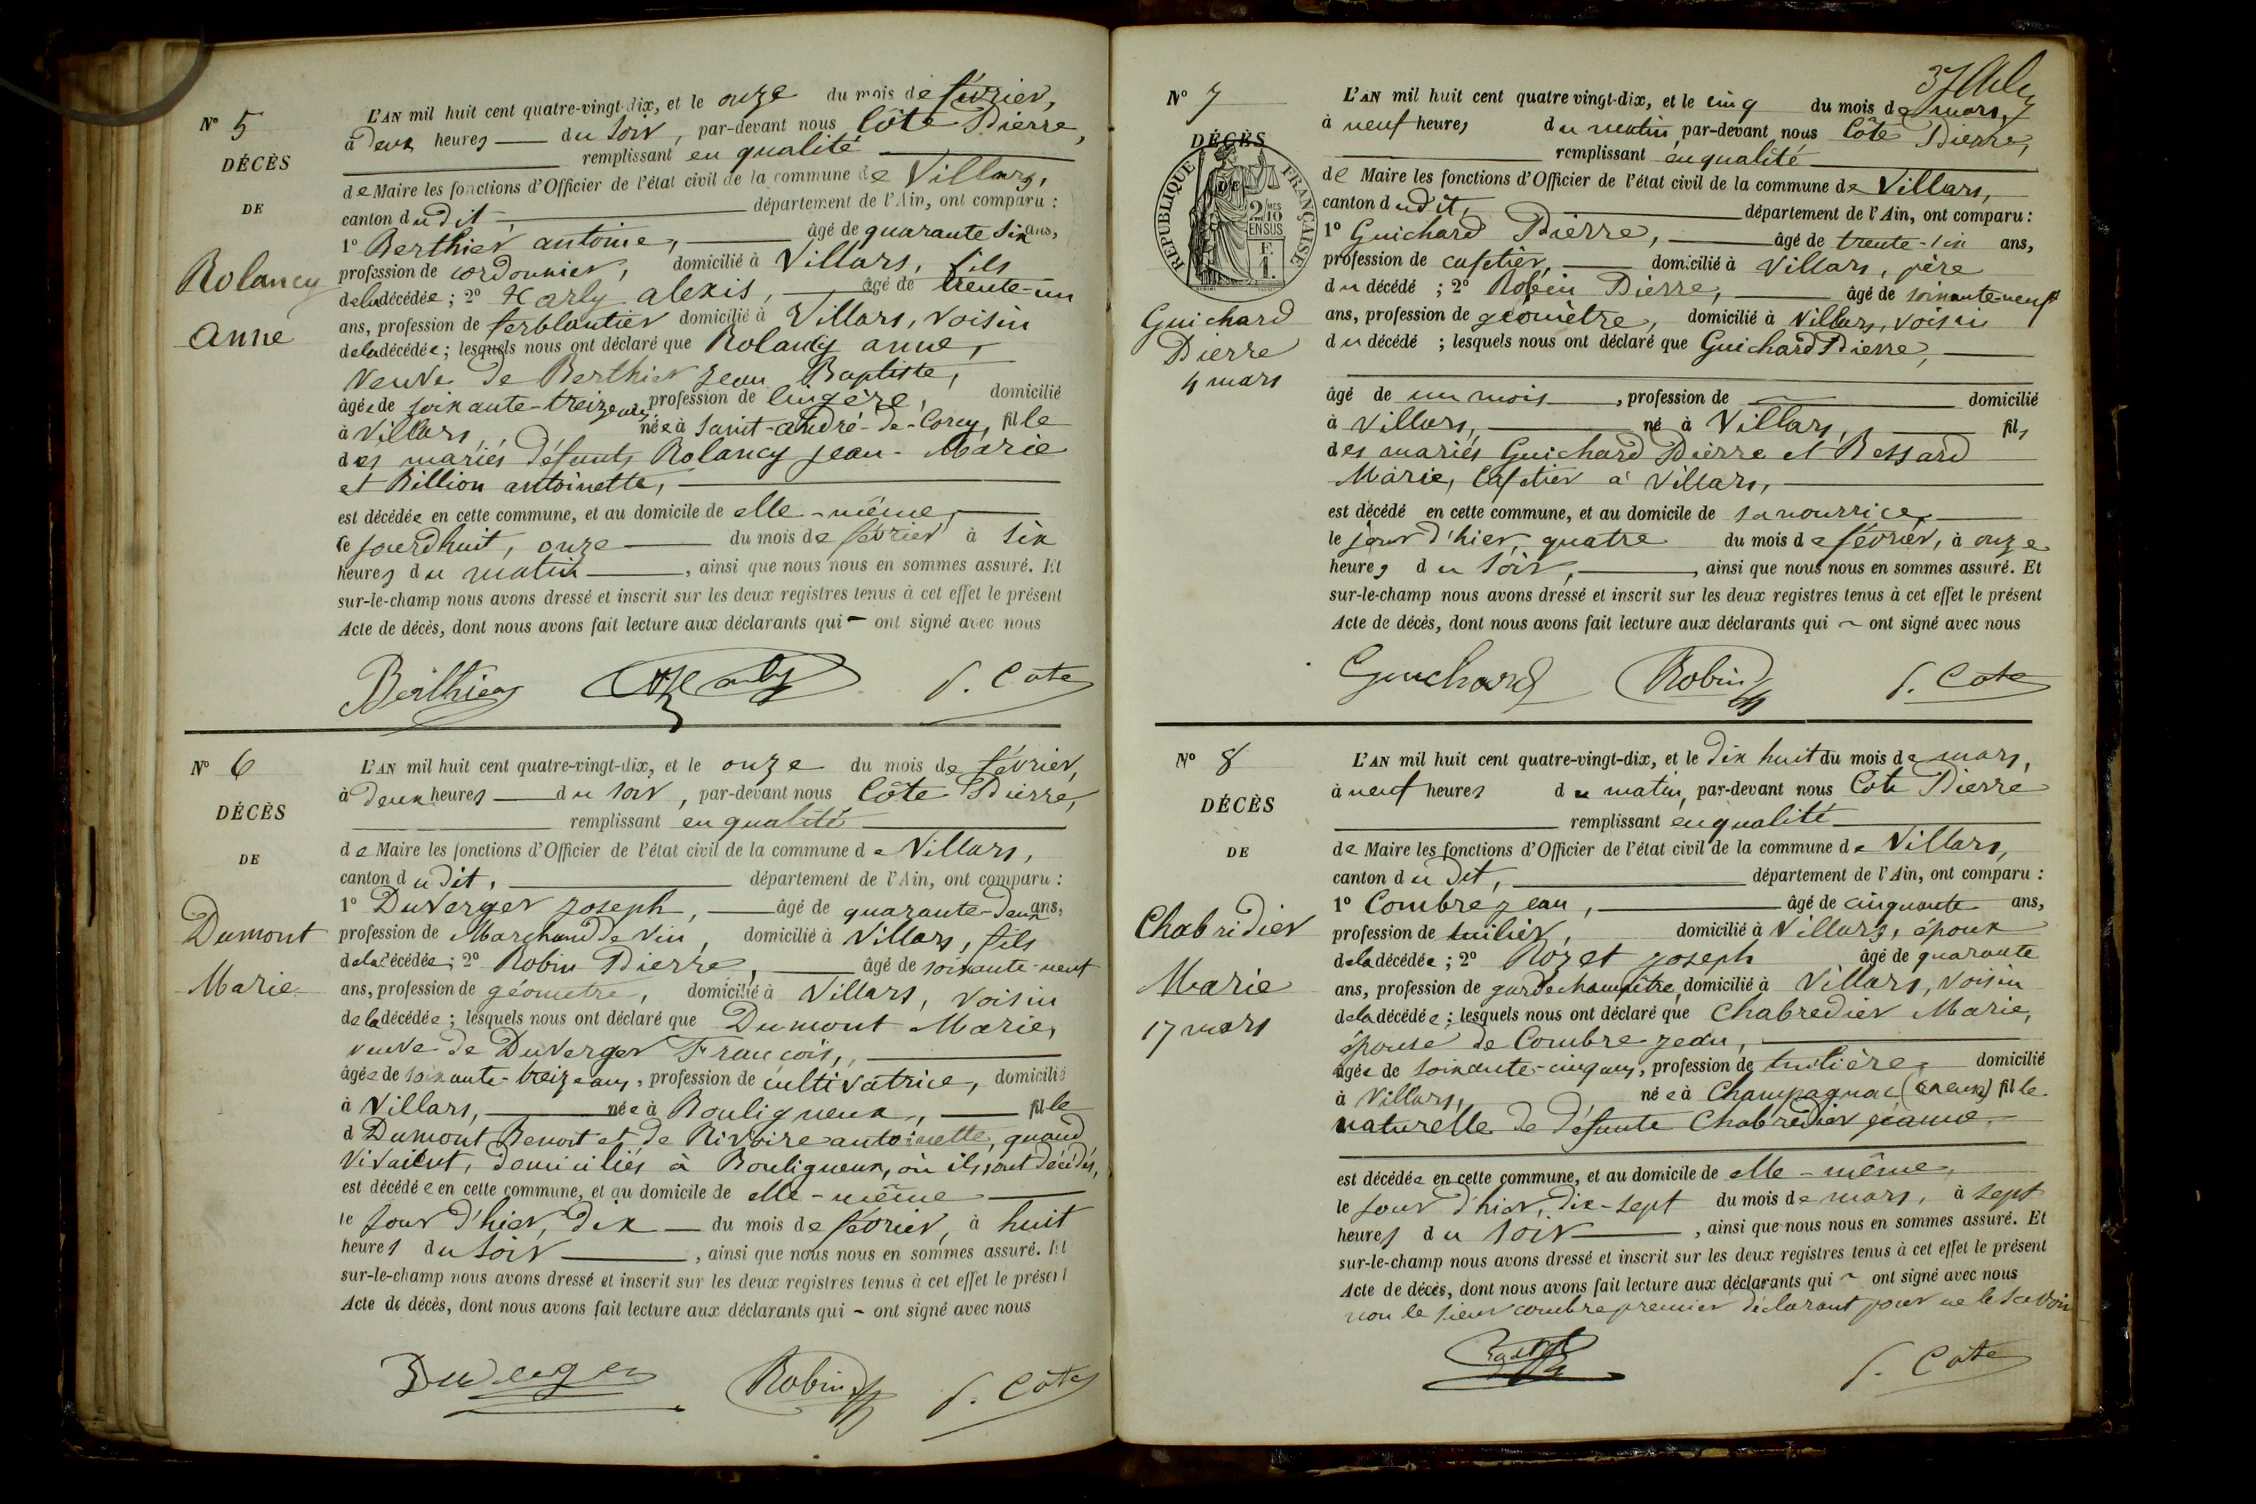 N° 5
DÉCÈS
DE
Rolancy
Anne
L'AN mil huit cent quatre-vingt-dix, et le onze du mois de février,
à deux heures du soir, par-devant nous Côte Pierre,
remplissant en qualité
de Maire les fonctions d'Officier de l'état civil de la commune de Villars,
canton dudit, département de l'Ain, ont comparu :
1° Berthier antoine, âgé de quarante six ans,
profession de cordonnier, domicilié à Villars, fils
de la décédée ; 2° Harly alexis, âgé de trente-un
ans, profession de ferblantier domicilié à Villars, voisin
de la décédée ; lesquels nous ont déclaré que Rolancy anne,
veuve de Berthier Jean Baptiste,
âgée de soixante-treize ans, profession de lingère, domicilié
à Villars, née à Saint-andré-de-Corcy, fille
des mariés défunts Rolancy Jean-Marie
et Billion antoinette,
est décédée en cette commune, et au domicile de elle-même,
ce jourd'huit, onze du mois de février à six
heures du matin, ainsi que nous nous en sommes assuré. Et
sur-le-champ nous avons dressé et inscrit sur les deux registres tenus à cet effet le présent
Acte de décès, dont nous avons fait lecture aux déclarants qui - ont signé avec nous
Berthier Harly P. Côte
N° 6
DÉCÈS
DE
Dumont
Marie
L'AN mil huit cent quatre-vingt-dix, et le onze du mois de février,
à deux heures du soir, par-devant nous Côte Pierre,
remplissant en qualité
de Maire les fonctions d'Officier de l'état civil de la commune de Villars,
canton dudit, département de l'Ain, ont comparu :
1° Duverger Joseph, âgé de quarante-deux ans,
profession de Marchand de vin, domicilié à Villars, fils
de la décédée ; 2° Robin Pierre, âgé de soixante-neuf
ans, profession de géomètre, domicilié à Villars, voisin
de la décédée ; lesquels nous ont déclaré que Dumont Marie,
veuve de Duverger François,
âgée de soixante-treize ans, profession de cultivatrice, domicilié
à Villars, née à Bouligneux, fille
d Dumont Benoit et de Rivoire antoinette, quand
vivaient, domiciliés à Bouligneux, où ils sont décédés,
est décédée en cette commune, et au domicile de elle-même
le jour d'hier, dix du mois de février, à huit
heures du soir, ainsi que nous nous en sommes assuré. Et
sur-le-champ nous avons dressé et inscrit sur les deux registres tenus à cet effet le présent
Acte de décès, dont nous avons fait lecture aux déclarants qui - ont signé avec nous
Duverger Robin P. Côte
37
N° 7
DÉCÈS
DE
RÉPUBLIQUE FRANÇAISE
2 MES 10 EN SUS
Guichard
Pierre
4 mars
L'AN mil huit cent quatre vingt-dix, et le cinq du mois de mars,
à neuf heures du matin, par-devant nous Côte Pierre,
remplissant en qualité
de Maire les fonctions d'Officier de l'état civil de la commune de Villars,
canton dudit, département de l'Ain, ont comparu :
1° Guichard Pierre, âgé de trente-six ans,
profession de cafetier, domicilié à Villars, père
du décédé ; 2° Robin Pierre, âgé de soixante-neuf
ans, profession de géomètre, domicilié à Villars, voisin
du décédé ; lesquels nous ont déclaré que Guichard Pierre,
âgé de un mois, profession de domicilié
à Villars, né à Villars, fils
des mariés Guichard Pierre et Bessard
Marie, Cafetier à Villars,
est décédé en cette commune, et au domicile de sa nourrice,
le jour d'hier, quatre du mois de février, à onze
heures du soir, ainsi que nous nous en sommes assuré. Et
sur-le-champ nous avons dressé et inscrit sur les deux registres tenus à cet effet le présent
Acte de décès, dont nous avons fait lecture aux déclarants qui ~ ont signé avec nous
Guichard Robin P. Cote
N° 8
DÉCÈS
DE
Chabridier
Marie
17 mars
L'AN mil huit cent quatre-vingt-dix, et le dix huit du mois de mars,
à neuf heures du matin, par-devant nous Côte Pierre
remplissant en qualité
de Maire les fonctions d'Officier de l'état civil de la commune de Villars,
canton dudit, département de l'Ain, ont comparu :
1° Combre Jean, âgé de cinquante ans,
profession de tuilier, domicilié à Villars, époux
de la décédée ; 2° Rozet Joseph âgé de quarante
ans, profession de garde champêtre, domicilié à Villars, voisin
de la décédée ; lesquels nous ont déclaré que Chabredier Marie,
épouse de Combre Jean,
âgée de soixante-cinq ans, profession de tuilière, domicilié
à Villars, née à Champagnac (Creuse) fille
naturelle de défunte Chabredier Jeanne,
est décédée en cette commune, et au domicile de elle-même,
le jour d'hier, dix-sept du mois de mars, à sept
heures du soir, ainsi que nous nous en sommes assuré. Et
sur-le-champ nous avons dressé et inscrit sur les deux registres tenus à cet effet le présent
Acte de décès, dont nous avons fait lecture aux déclarants qui ~ ont signé avec nous
non le sieur Combre premier déclarant pour ne le savoir
P. Côte